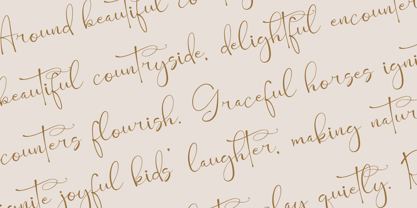 Around beautiful co
beautiful countryside, delightful encounter
counters flourish. Graceful horses igni
ignite joyful kids' laughter, making natur
play quietly.